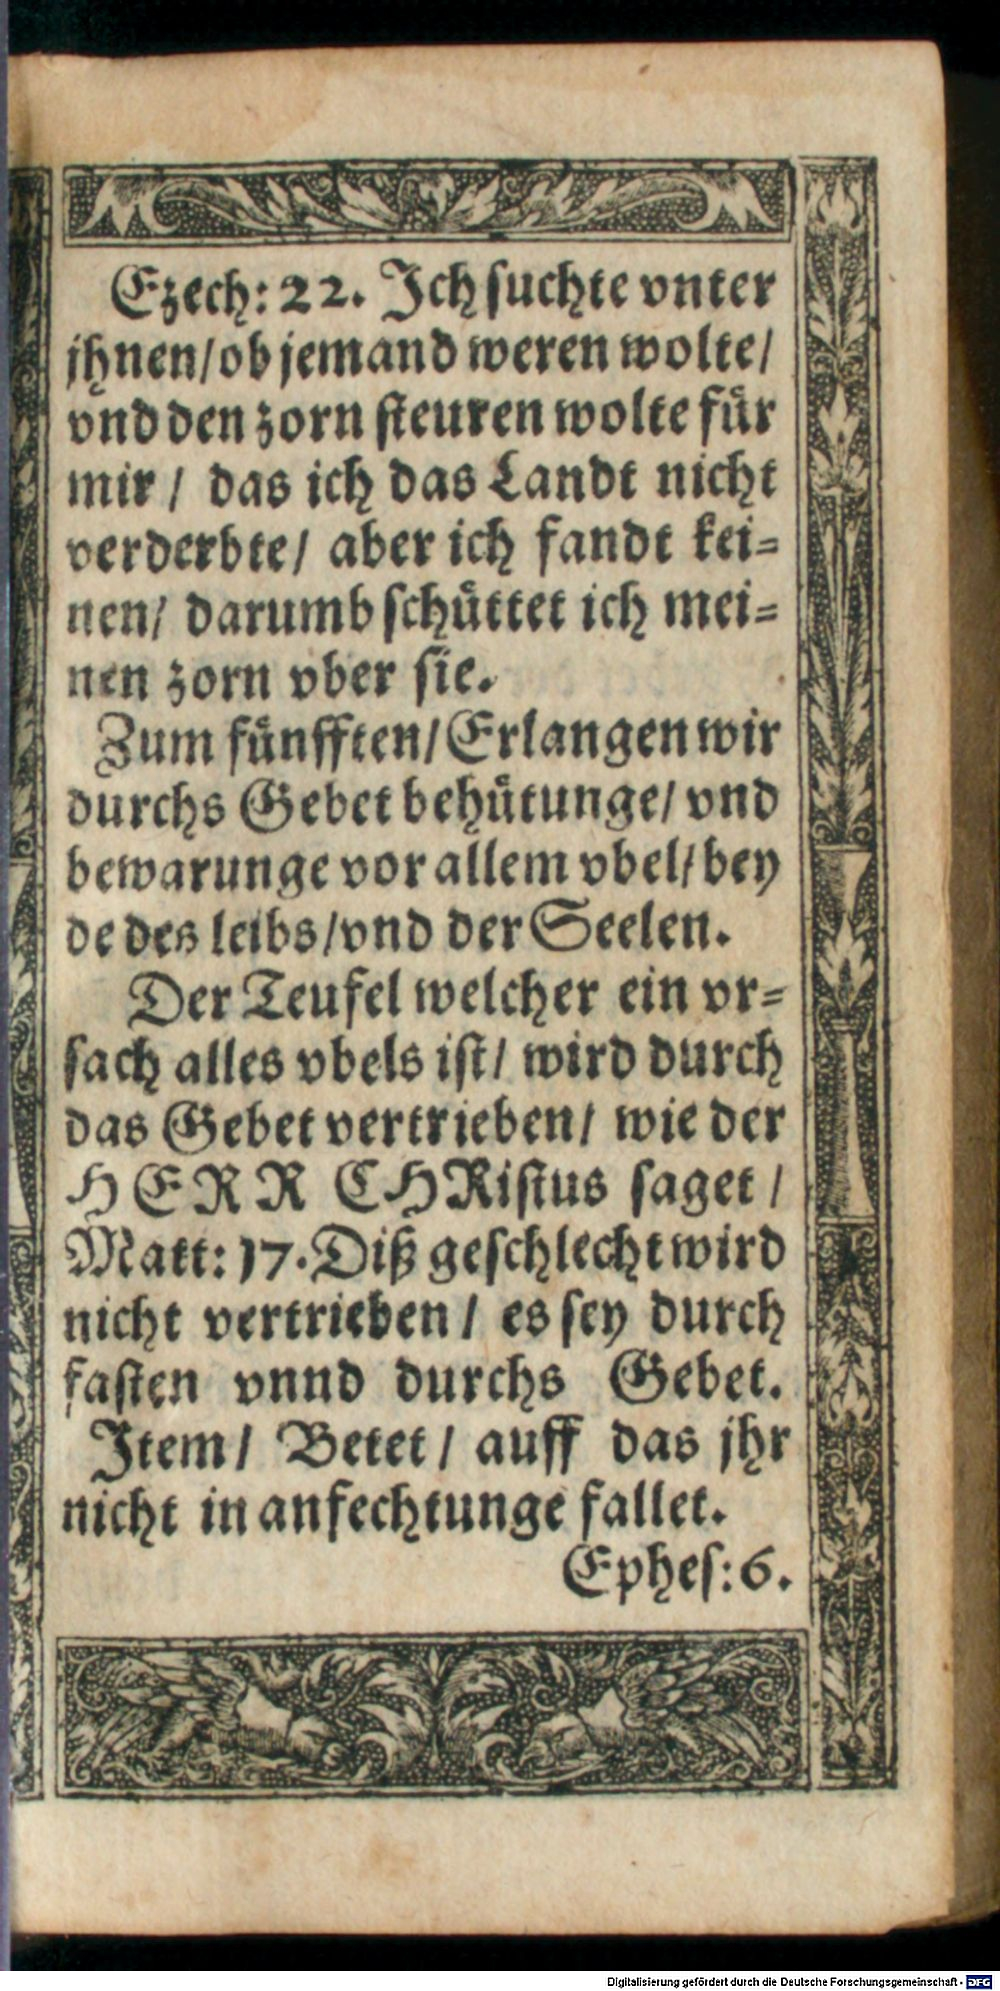 Ezech: 22. Ich suchte vnter
jhnen/ob jemand weren wolte/
vnd den zorn steuren wolte für
mir / das ich das Landt nicht
verderbte/ aber ich fandt kei-
nen/ darumb schüttet ich mei-
nen zorn vber sie.
Zum fünfften/Erlangen wir
durchs Gebet behütunge/ vnd
bewarunge vor allem vbel/bey
de des leibs/vnd der Seelen.
Der Teufel welcher ein vr-
sach alles vbels ist/ wird durch
das Gebet vertrieben/ wie der
HERR CHRistus saget /
Matt: 17. Diß geschlecht wird
nicht vertrieben / es sey durch
fasten vnnd durchs Gebet.
Item/ Betet / auff das jhr
nicht in anfechtunge fallet.
Ephes: 6.
Digitalisierung gefördert durch die Deutsche Forschungsgemeinschaft - DFG